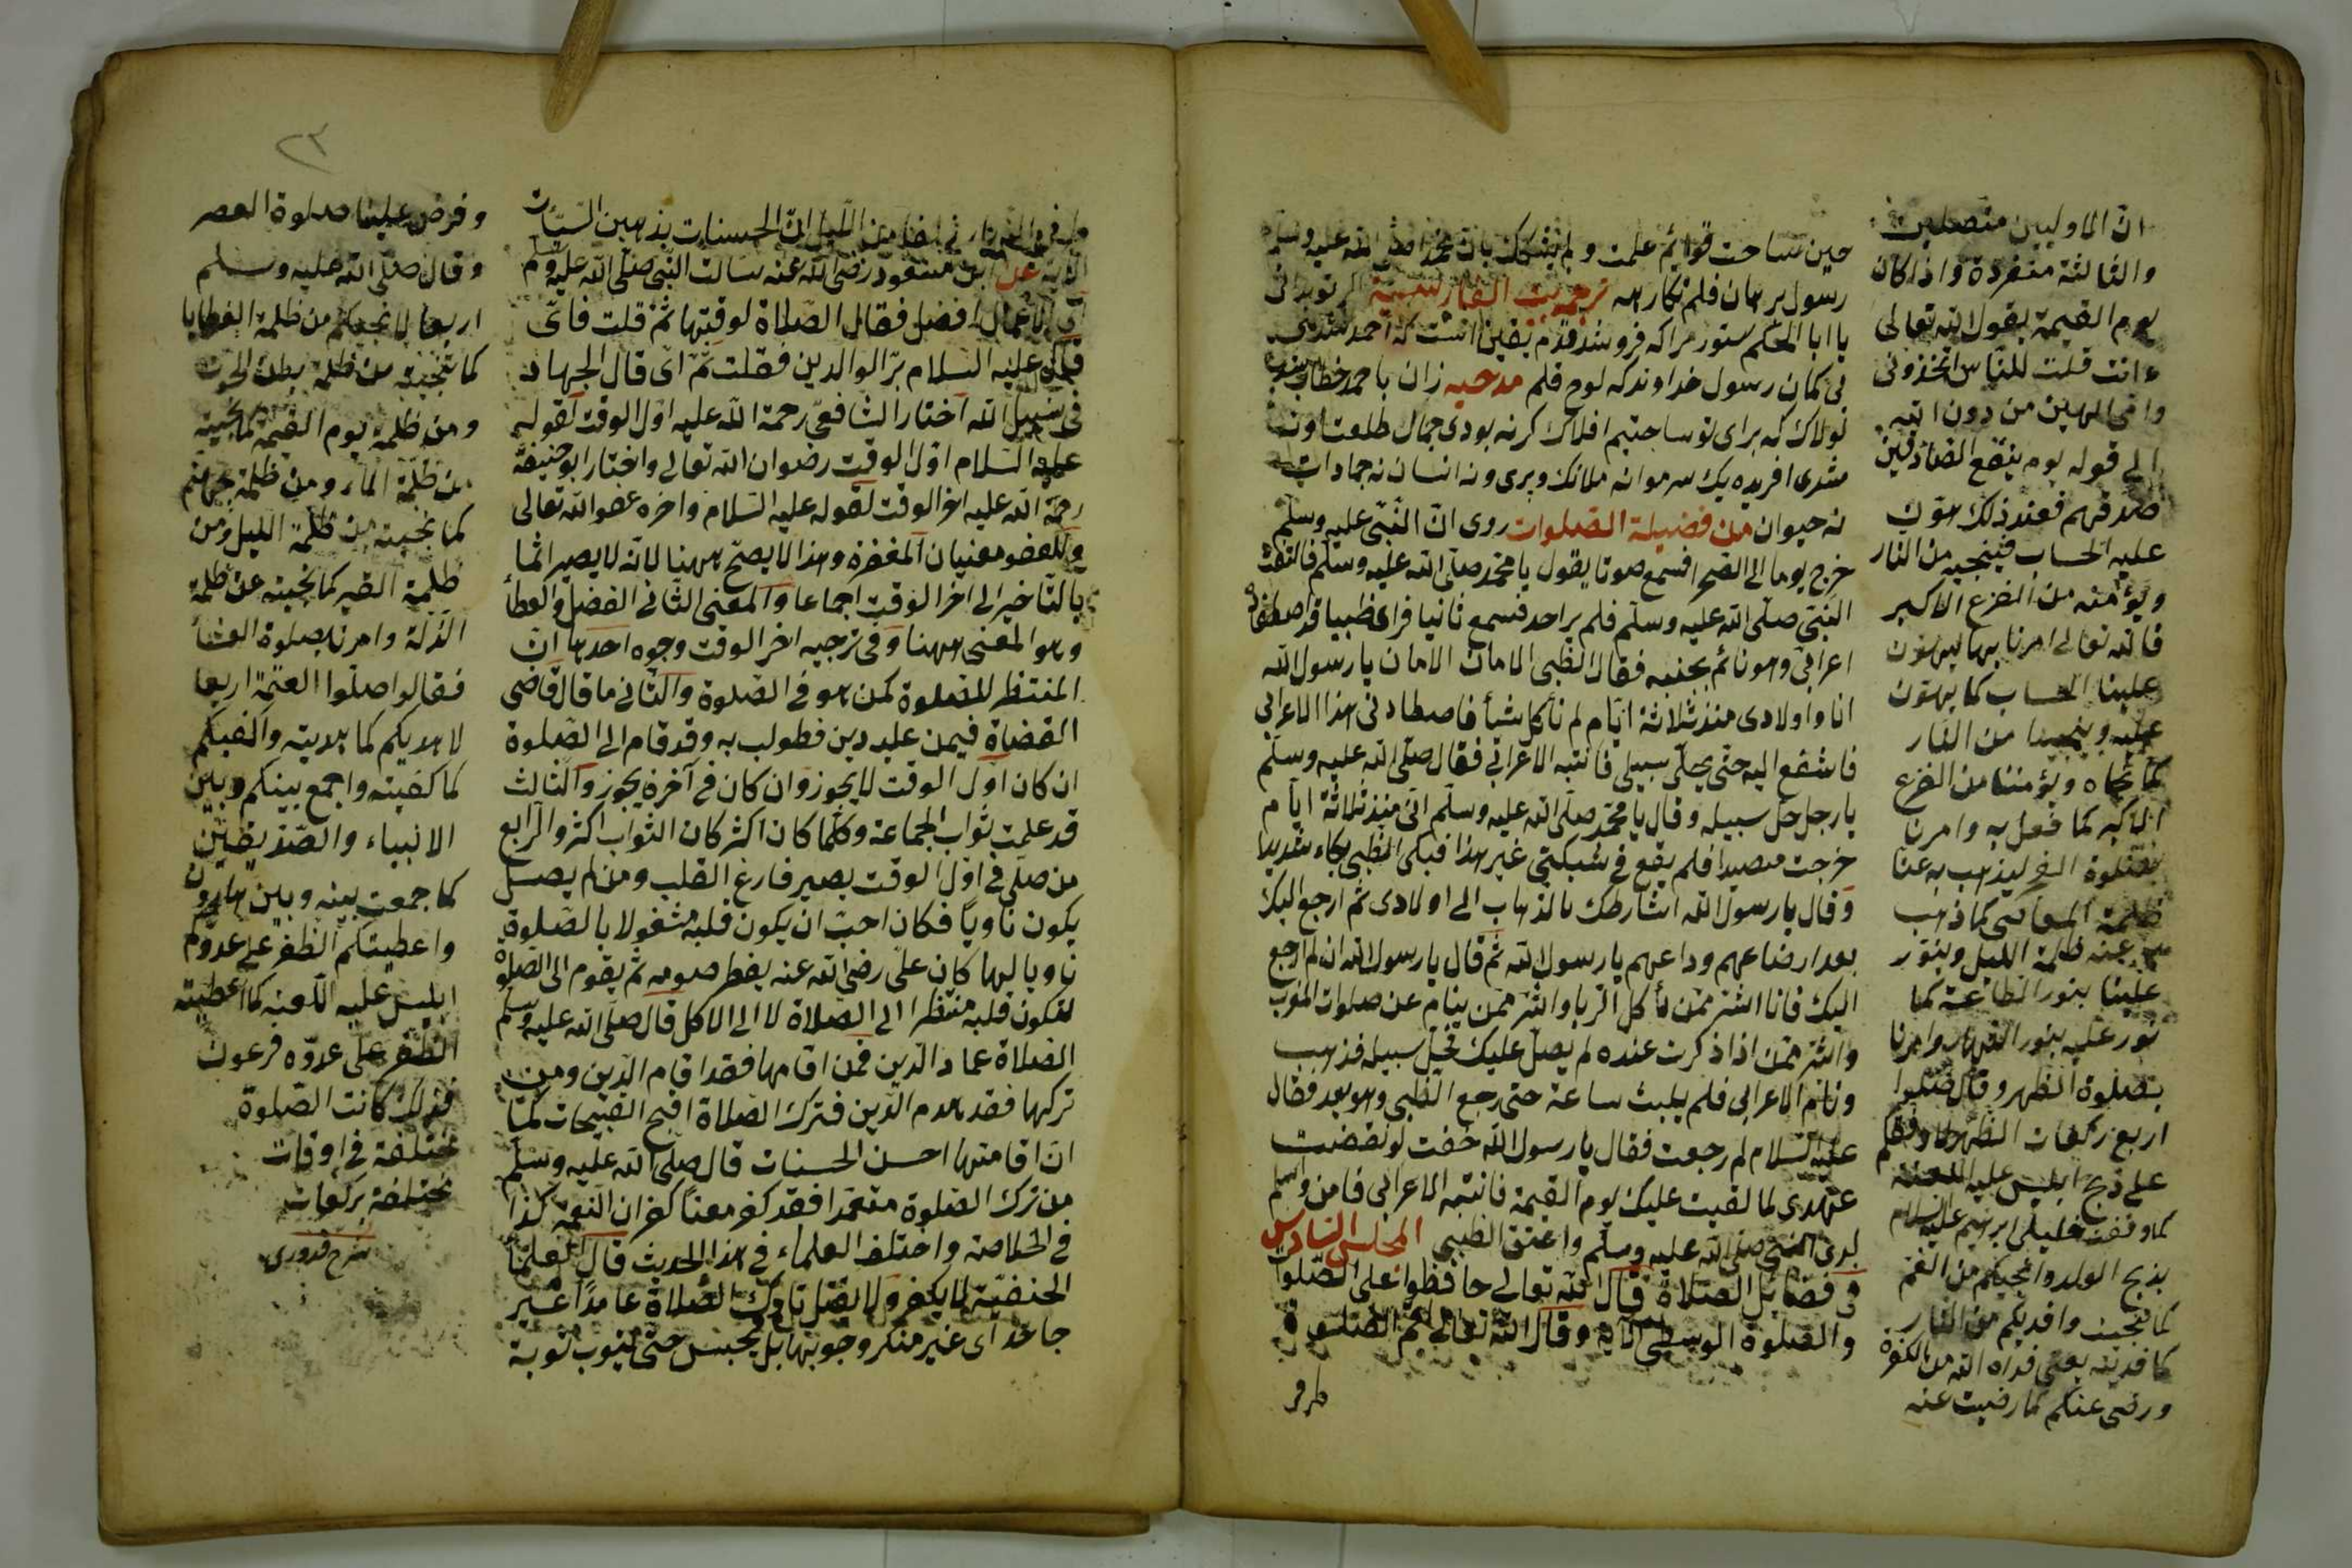 حين ساخت قوائم علمت ولم يشكك بان محمدا صلى الله عليه وسلم
رسول برهان فلم نكارهه ترجمه بيت الفارسية
يا ابا الحكم ستور مراكه فروشد قدم يقين انست كه احمد
بى كمان رسول خداوندكه لوح قلم مدحيه زان با محمد خطاب
لولاك كه براى تو ساختيم افلاك كرنه بودى جمال طلعت او نه
شدى افريده يك سرمو نه ملائك وپرى ونه انسان نه جمادات
نه حيوان من فضيلة الصلوات روى ان النبى عليه وسلم
خرج يوما الى الصحرا فسمع صوتا يقول يا محمد صلى الله عليه وسلم فالتفت
النبى صلى الله عليه وسلم فلم ير احد فسمع ثانيا فراى ظبيا قد اصطفاد
اعرابى وهو نائم بجنبه فقال الظبى الامان الامان يا رسول الله
انا واولادى منذ ثلاثة ايام لم نأكل شيأ فاصطادنى هذا الاعرابى
فاشفع اليه حتى يخلى سبيلى فانتبه الاعرابى فقال صلى الله عليه وسلم
يا رجل خل سبيله وقال يا محمد صلى الله عليه وسلم انى منذ ثلاثة ايام
خرجت مصيدا فلم يقع فى شبكتى غير هذا فبكى الظبى بكاء شديدا
وقال يا رسول الله اشارطك بالذهاب الى اولادى ثم ارجع اليك
بعد ارضاعهم وداعهم يا رسول الله ثم قال يا رسول الله ان لم ارجع
اليك فانا اشر ممن يأكل الربا واشر ممن ينام عن صلوات المغرب
واشر ممن اذا ذكرت عنده لم يصل عليك فخل سبيله فذهب
ونام الاعرابى فلم يلبث ساعة حتى رجع الظبى وهو يعد فقال
عليه السلام لم رجعت فقال يا رسول الله خفت لو نقضت
عهدى لما لقيت عليك يوم القيمة فانتبه الاعرابى فامن واسلم
لدى النبى صلى الله عليه وسلم واعتق الظبى المجلس السادس
فى فضائل الصلاة قال الله تعالى حافظوا على الصلوات
والصلوة الوسطى الآية وقال الله تعالى اقم الصلوة
طرفى
ان الاوليين متصلين
والثالثة منفردة واذا كان
يوم القيمة يقول الله تعالى
ءانت قلت للناس اتخذونى
وامى الهين من دون الله
الى قوله يوم ينفع الصادقين
صدقهم فعند ذلك هون
عليه الحساب فينجيه من النار
ويؤمنه من الفزع الاكبر
فالله تعالى امرنا بها ليهون
علينا الحساب كما يهون
عليه وينجينا من النار
كما نجاه ويؤمننا من الفزع
الاكبر كما فعل به وامرنا
بصلوة الفجر ليذهب به عنا
ظلمة المعاصى كما ذهب
عنه ظلمة الليل وينور
علينا بنور الطاعة كما
نور عليه بنور النهار وامرنا
بصلوة الظهر وقال صلوا
اربع ركعات الظهر لاوفقكم
على ذبح ابليس عليه اللعنة
كما وفقت خليلى ابرهيم عليه السلام
بذبح الولد وانجيكم من الغم
كما نجيت وافديكم من النار
كما فديته يعنى فداه الله من
ورضى عنكم كما رضيت عنه
طرفى النهار زلفا من الليل ان الحسنات يذهبن السيئات
الآية عن ابن مسعود رضى الله عنه سالت النبى صلى الله عليه وسلم
اى الاعمال افضل فقال الصلاة لوقتها ثم قلت فاى
قال عليه السلام بر الوالدين فقلت ثم اى قال الجهاد
فى سبيل الله اختار الشافعى رحمة الله عليه اول الوقت لقوله
عليه السلام اول الوقت رضوان الله تعالى واختار ابو حنيفة
رحمة الله عليه اخر الوقت لقوله عليه السلام واخره عفو الله تعالى
وللعفو معنيان المغفرة وهذا لا يصح ههنا لانه لا يصير اثما
بالتاخير الى اخر الوقت اجماعا والمعنى الثانى الفضل والعطأ
وهو المعنى ههنا وفى ترجيه اخر الوقت وجوه احدها ان
المنتظر للصلوة كمن هو فى الصلوة والثانى ما قال قاضى
القضاة فيمن عليه دين فطولب به وقد قام الى الصلوة
ان كان اول الوقت لا يجوز وان كان فى آخره يجوز والثالث
قد علمت ثواب الجماعة وكلما كان اكثر كان الثواب اكثر والرابع
من صلى فى اول الوقت يصير فارغ القلب ومن لم يصل
يكون ناويا فكان احب ان يكون قلبه مشغولا بالصلوة
ناويا لها كان على رضى الله عنه يفطر صومه ثم يقوم الى الصلوة
لتكون قلبه منتظرا الى الصلاة لا الى الاكل قال صلى الله عليه وسلم
الصلاة عماد الدين فمن اقامها فقد اقام الدين ومن
تركها فقد هدم الدين فترك الصلاة اقبح القبيحات كما
ان اقامتها احسن الحسنات قال صلى الله عليه وسلم
من ترك الصلوة متعمدا فقد كفر معنا كفران النعمة كذا
فى الخلاصة واختلف العلماء فى هذا الحديث قال العلما
الحنفية لا يكفر ولا يقتل تارك الصلاة عامدا غير
جاحدا اى غير منكر وجوبها بل يحبس حتى يتوب توبة
٢٣
وفرض علينا صلوة العصر
وقال صلى الله عليه وسلم
اربعا لانجيكم من ظلمة الخطايا
كما نجيته من ظلمة بطن الحوت
ومن ظلمة يوم القيمة كما نجيته
من ظلمة الماء ومن ظلمة جهنم
كما نجيته من ظلمة الليل ومن
ظلمة القبر كما نجيته عن ظلمة
الذلة وامرنا بصلوة العشاء
فقالوا صلوا العتمة اربعا
لاهديكم كما هديته واكفيكم
كما كفيته واجمع بينكم وبين
الانبياء والصديقين
كما جمعت بينه وبين هارون
واعطيتكم الظفر على عدوكم
ابليس عليه اللعنة كما اعطيته
الظفر على عدوه فرعون
فذلك كانت الصلوة
مختلفة فى اوقات
مختلفة بركعات
شرح قدورى